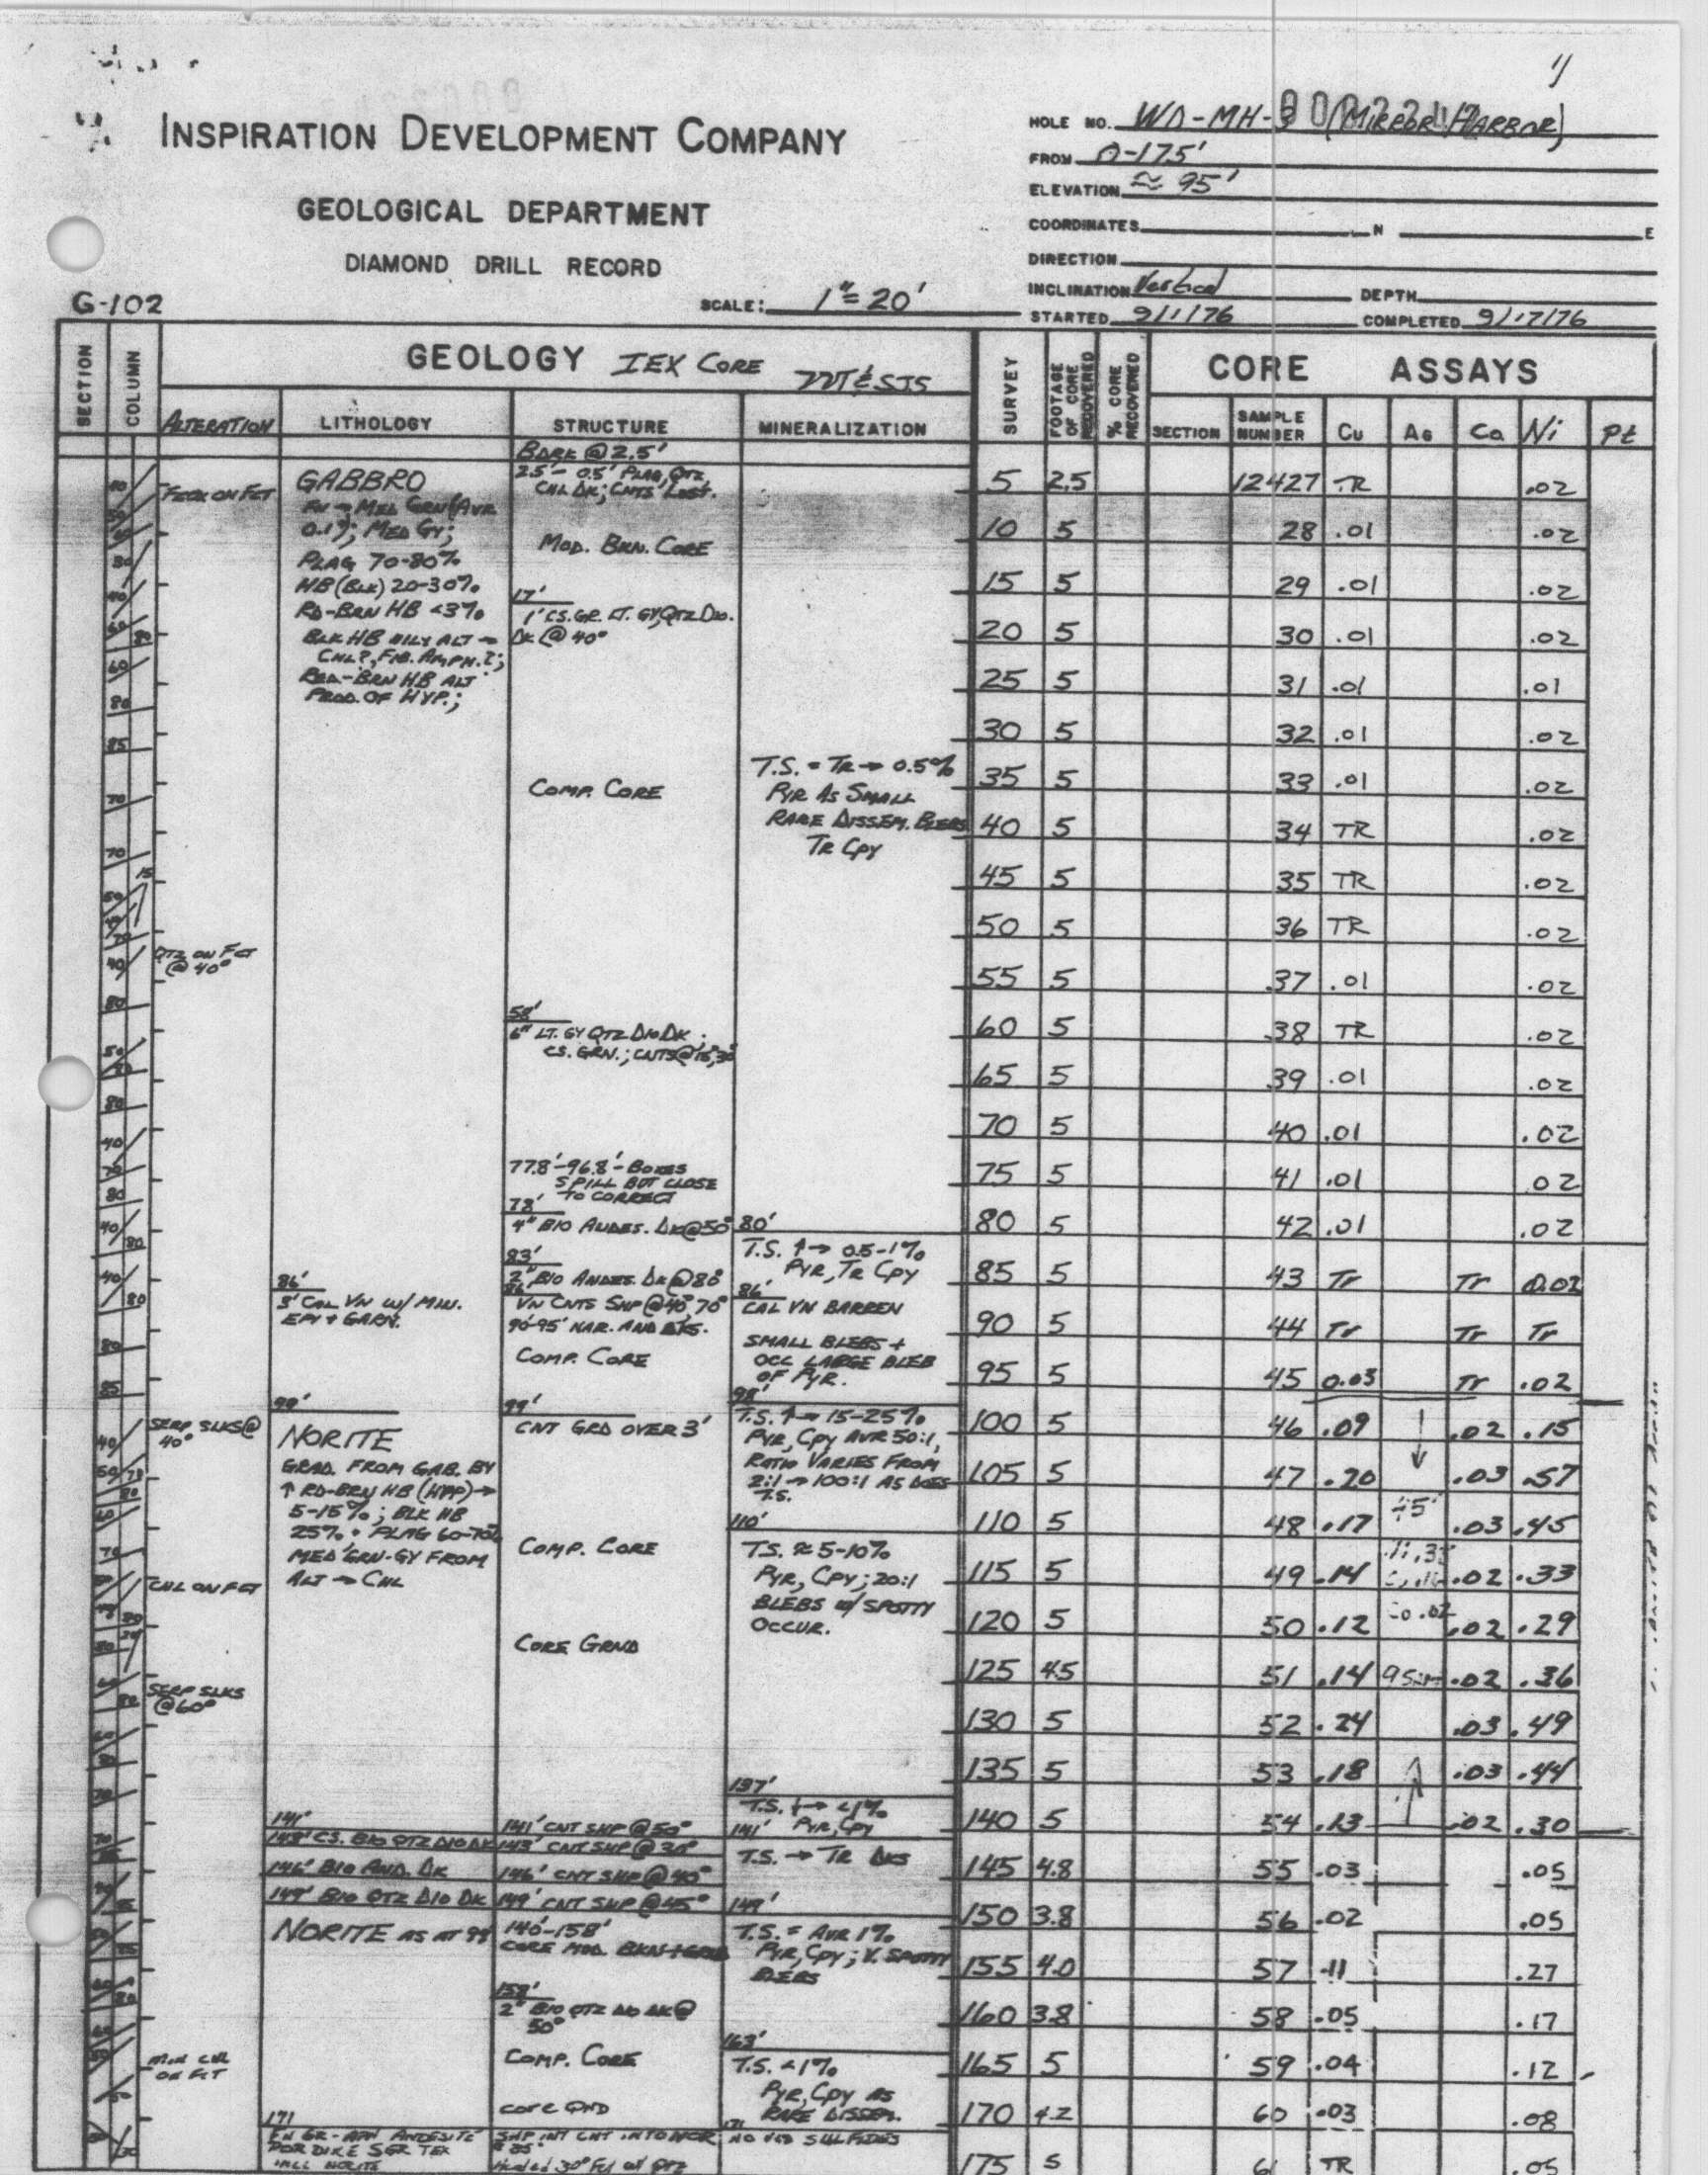 INSPIRATION DEVELOPMENT COMPANY
GEOLOGICAL DEPARTMENT
DIAMOND DRILL RECORD
G-102
SCALE: 1"=20'
HOLE NO. (MIRROR HARBOR)
FROM 0-175'
ELEVATION ≈ 95'
COORDINATES N E
DIRECTION
INCLINATION Vertical DEPTH
STARTED 9/1/76 COMPLETED 9/17/76
SECTION COLUMN GEOLOGY IEX CORE SURVEY FOOTAGE OF CORE RECOVERED % CORE RECOVERED CORE ASSAYS
ALTERATION LITHOLOGY STRUCTURE MINERALIZATION SECTION SAMPLE NUMBER Cu Ag Co Ni Pt
BDRK @ 2.5'
FEOX ON FCT
GABBRO
FN → MED GRN (AVR
0.1"); MED GY;
PLAG 70-80%
HB (BLK) 20-30%
RD-BRN HB <3%
BLK HB ALT →
CHL?, FIB. AMPH.?;
RED-BRN HB ALT
PROD. OF HYP.;
2.5'- 0.5' PLAG, QTZ,
CHL DK; CNTS LOST.
MOD. BKN. CORE
17'
1' CS. GR. LT. GY QTZ DIO.
DK @ 40°
COMP. CORE
T.S. = TR → 0.5%
PYR AS SMALL
RARE DISSEM. BLEBS
TR CPY
QTZ ON FCT
@ 40°
58'
6" LT. GY QTZ DIO DK;
CS. GRN.; CNTS @ 15°, 30°
77.8'-96.8'- BOXES
SPILL BUT CLOSE
TO CORRECT
78'
4" BIO ANDES. DK @ 50°
83'
2" BIO ANDES. DK @ 80°
86'
VN CNTS SHP @ 40°, 70°
90'-95' NAR. AND DKS.
COMP. CORE
80'
T.S. ↑→ 0.5-1%
PYR, TR CPY
86'
CAL VN BARREN
SMALL BLEBS +
OCC LARGE BLEB
OF PYR.
86'
3' CAL VN W/ MIN.
EPI + GARN.
SERP SLKS @
40°
99'
NORITE
GRAD. FROM GAB. BY
↑ RD-BRN HB (HYP) →
5-15%; BLK HB
25% + PLAG 60-70%
MED GRN-GY FROM
ALT → CHL
99'
CNT GRD OVER 3'
COMP. CORE
CORE GRND
98'
T.S. ↑→ 15-25%
PYR, CPY AVR 50:1,
RATIO VARIES FROM
2:1 → 100:1 AS DOES
T.S.
110'
T.S. ≈ 5-10%
PYR, CPY; 20:1
BLEBS W/ SPOTTY
OCCUR.
CHL ON FCT
SERP SLKS
@ 60°
137'
T.S. ↓→ <1%
PYR, CPY
141' 141' CNT SHP @ 50° 141'
143' CS. BIO QTZ DIO DK 143' CNT SHP @ 30° T.S. → TR DKS
146' BIO AND. DK 146' CNT SHP @ 40°
149' BIO QTZ DIO DK 149' CNT SHP @ 45° 149'
NORITE AS AT 99'
140'-158'
CORE MOD. BKN + GRND
158'
2" BIO QTZ DIO DK @
50°
COMP. CORE
core GND
T.S. = AVR 1%
PYR, CPY; V. SPOTTY
BLEBS
163'
T.S. <1%
PYR, CPY AS
RARE DISSEM.
171
MIN CHL
ON FCT
171
FN GR - APH ANDESITE
POR DIKE
NO VIS SULFIDES
Healed 30° Fct w/ QTZ
5 2.5 12427 TR .02
10 5 28 .01 .02
15 5 29 .01 .02
20 5 30 .01 .02
25 5 31 .01 .01
30 5 32 .01 .02
35 5 33 .01 .02
40 5 34 TR .02
45 5 35 TR .02
50 5 36 TR .02
55 5 37 .01 .02
60 5 38 TR .02
65 5 39 .01 .02
70 5 40 .01 .02
75 5 41 .01 .02
80 5 42 .01 .02
85 5 43 Tr Tr 0.02
90 5 44 Tr Tr Tr
95 5 45 0.03 Tr .02
100 5 46 .09 .02 .15
105 5 47 .20 .03 .57
110 5 48 .17 45' .03 .45
115 5 49 .14 .02 .33
120 5 50 .12 Co .02 .02 .29
125 4.5 51 .14 .02 .36
130 5 52 .24 .03 .49
135 5 53 .18 .03 .44
140 5 54 .13 .02 .30
145 4.8 55 .03 .05
150 3.8 56 .02 .05
155 4.0 57 .11 .27
160 3.8 58 .05 .17
165 5 59 .04 .12
170 4.2 60 .03 .08
175 5 61 TR .05